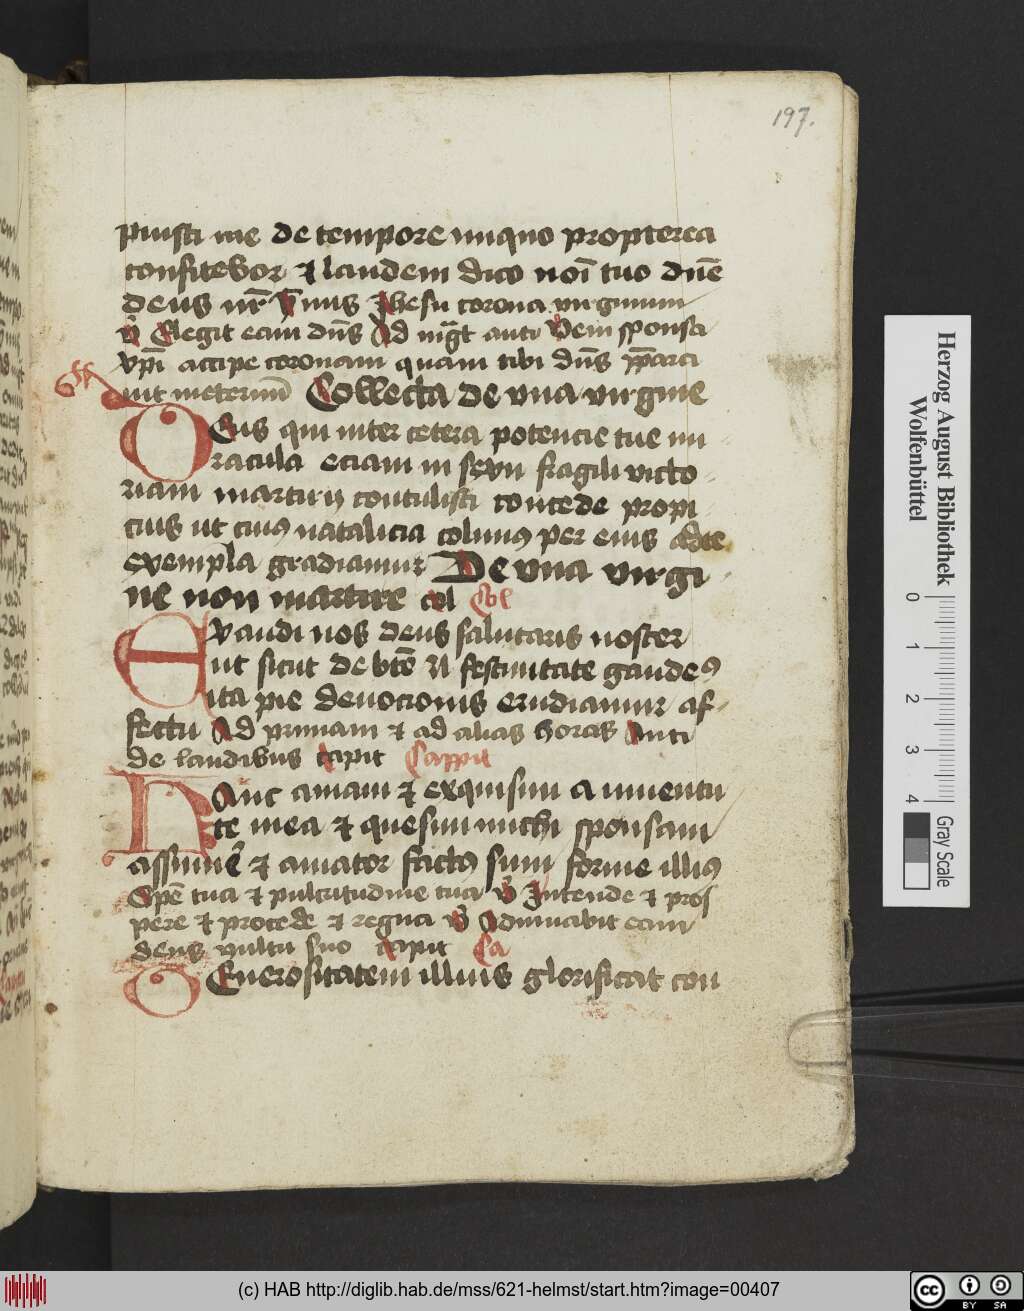 197.
puisti me de tempore iniquo propterea
confitebor ⁊ laudem dico noī tuo dn̄e
deus nr̄ ympnus Jhesu corona virginum
v̄ Elegit eam dn̄s Ad mḡt anti Veni sponsa
xp̄i accipe coronam quam tibi dn̄s p̄para
uit in eternū Collecta de vna virgine
Deus qui inter cetera potencie tue mi
racula eciam in sexu fragili victo
riam martirij contulisti concede propi
cius ut cuiꝰ natalicia colimꝰ per eius ad te
exempla gradiamur De vna virgi
ne non martire col Col
Exaudi nos deus salutaris noster
ut sicut de bt̄e N festiuitate gaudeꝰ
ita pie deuocionis erudiamur af
fectu Ad primam ⁊ ad alias horas Anti
de laudibus capit Cappit
Hanc amaui ⁊ exquisiui a iuuentu
te mea ⁊ quesiui michi sponsam
assumē ⁊ amator factꝰ sum forme illiꝰ
Spē tua ⁊ pulcritudine tua v̄ Intende ⁊ pros
pere ⁊ procede ⁊ regna v̄ Adiuuabit eam
deus vultu suo capit Ca
Generositatem illius glorificat con
Herzog August Bibliothek
Wolfenbüttel
0 1 2 3 4
Gray Scale
(c) HAB http://diglib.hab.de/mss/621-helmst/start.htm?image=00407
cc BY SA